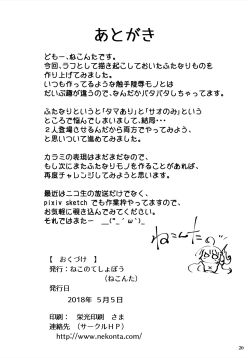 あとがき
どもー、ねこんたです。
今回、ラフとして描き起こしておいたふたなりものを
作り上げてみました。
いつも作ってるような触手陵辱モノとは
だいぶ趣が違うので、なんだかバタバタしちゃってます。
ふたなりというと「タマあり」と「サオのみ」という
ところで悩んでしまいまして、結局…
２人登場させるんだから両方でやってみよう、
と思いついて進めてみました。
カラミの表現はまだまだなので、
もし次にまたふたなりモノを作ることがあれば、
再度チャレンジしてみようと思います。
最近はニコ生の放送だけでなく、
pixiv sketch でも作業枠やってますので、
お気軽に覗き込んでみてください。
それではまたー　__(°_´ω`)_
ねこんた
【　おくづけ　】
発行：ねこのてしょぼう
（ねこんた）
発行日
2018年　５月５日
印刷：　栄光印刷　さま
連絡先　（サークルＨＰ）
http://www.nekonta.com/
26